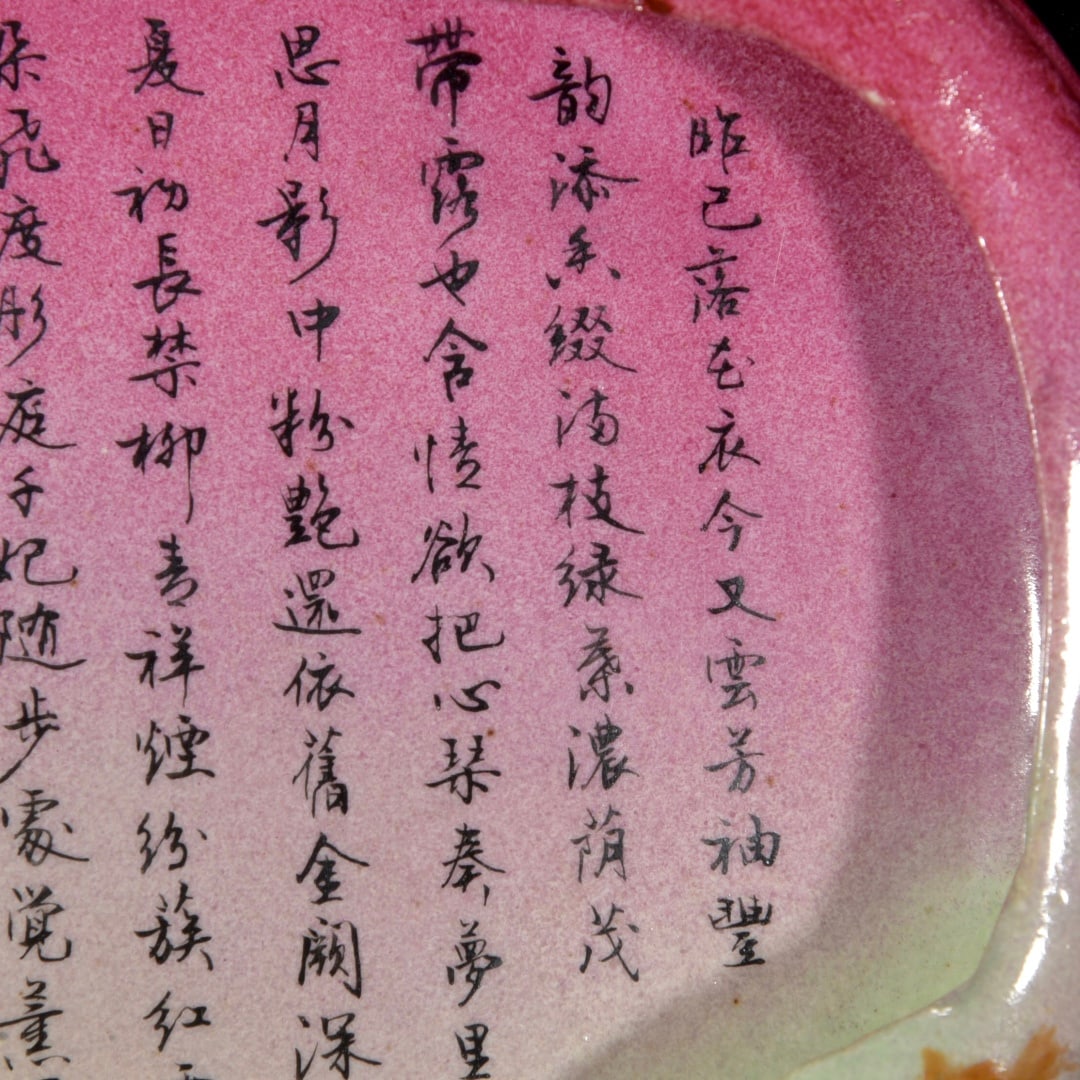 昨已落花衣今又雲芳袖豐
韵添香綴滿枝绿葉濃荫茂
带露也含情欲把心琴奏夢里
思月影中粉艷還依舊金闕深
夏日初長禁柳青祥煙纷蔟红
朵飛度彤庭千妃随步處覚薰